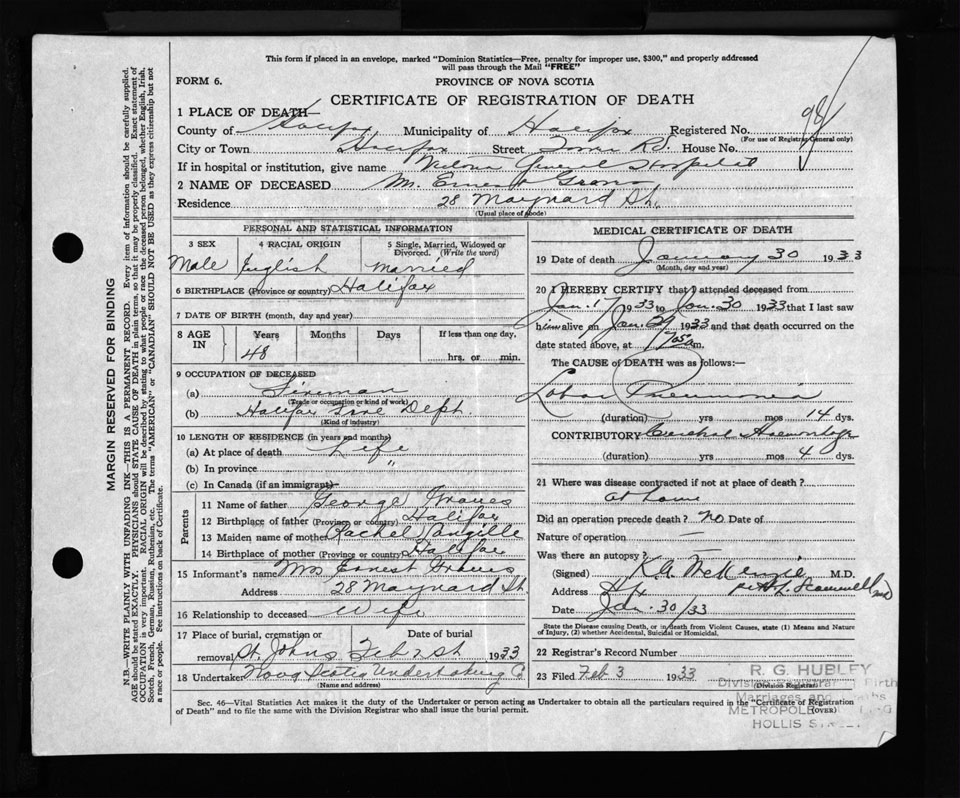 This form if placed in an envelope, marked "Dominion Statistics—Free, penalty for improper use, $300," and properly addressed
will pass through the Mail "FREE"
FORM 6.
PROVINCE OF NOVA SCOTIA
CERTIFICATE OF REGISTRATION OF DEATH
1 PLACE OF DEATH—
County of Halifax Municipality of Halifax Registered No.
(For use of Registrar General only)
City or Town Halifax Street Tower Rd. House No.
If in hospital or institution, give name Victoria General Hospital
2 NAME OF DECEASED Mr. Ernest Graves
Residence 28 Maynard St.
(Usual place of abode)
PERSONAL AND STATISTICAL INFORMATION
3 SEX 4 RACIAL ORIGIN 5 Single, Married, Widowed or Divorced. (Write the word)
Male English married
6 BIRTHPLACE (Province or country) Halifax
7 DATE OF BIRTH (month, day and year)
8 AGE IN Years Months Days If less than one day,
48 hrs. or min.
9 OCCUPATION OF DECEASED
(a) Fireman
(Trade or occupation or kind of work)
(b) Halifax Fire Dept.
(Kind of industry)
10 LENGTH OF RESIDENCE (in years and months)
(a) At place of death Life
(b) In province "
(c) In Canada (if an immigrant)
Parents
11 Name of father George Graves
12 Birthplace of father (Province or country) Halifax
13 Maiden name of mother Rachel Langille
14 Birthplace of mother (Province or country) Halifax
15 Informant's name Mrs Ernest Graves
Address 28 Maynard St.
16 Relationship to deceased Wife
17 Place of burial, cremation or removal St. Johns Date of burial Feb 1st 1933
18 Undertaker Nova Scotia Undertaking Co
(Name and address)
MEDICAL CERTIFICATE OF DEATH
19 Date of death January 30 1933
(Month, day and year)
20 I HEREBY CERTIFY that I attended deceased from
Jan. 17 1933 to Jan. 30 1933 that I last saw
him alive on Jan. 1933 and that death occurred on the
date stated above, at m.
The CAUSE of DEATH was as follows:—
Lobar Pneumonia
(duration) yrs mos 14 dys.
CONTRIBUTORY Cerebral Haemorrhage
(duration) yrs mos 4 dys.
21 Where was disease contracted if not at place of death?
at home
Did an operation precede death? No Date of
Nature of operation —
Was there an autopsy?
(Signed) K.A. McKenzie M.D.
Address Hfx
Date Jan. 30/33
State the Disease causing Death, or in death from Violent Causes, state (1) Means and Nature
of Injury, (2) whether Accidental, Suicidal or Homicidal.
22 Registrar's Record Number
23 Filed Feb 3 1933
(Division Registrar)
R. G. HUBLEY
Division Registrar of Birth
Marriages and Deaths
METROPOLE
HOLLIS STREET
(OVER)
Sec. 46—Vital Statistics Act makes it the duty of the Undertaker or person acting as Undertaker to obtain all the particulars required in the "Certificate of Registration
of Death" and to file the same with the Division Registrar who shall issue the burial permit.
MARGIN RESERVED FOR BINDING
N.B.—WRITE PLAINLY WITH UNFADING INK—THIS IS A PERMANENT RECORD. Every item of information should be carefully supplied.
AGE should be stated EXACTLY. PHYSICIANS should STATE CAUSE OF DEATH in plain terms, so that it may be properly classified. Exact statement of
OCCUPATION is very important. RACIAL ORIGIN will be described by stating to what people or race the deceased person belonged, whether English, Irish,
Scotch, French, German, Russian, Ruthenian, etc. The terms "AMERICAN" or "CANADIAN" SHOULD NOT BE USED as they express citizenship but not
a race or people. See instructions on back of Certificate.